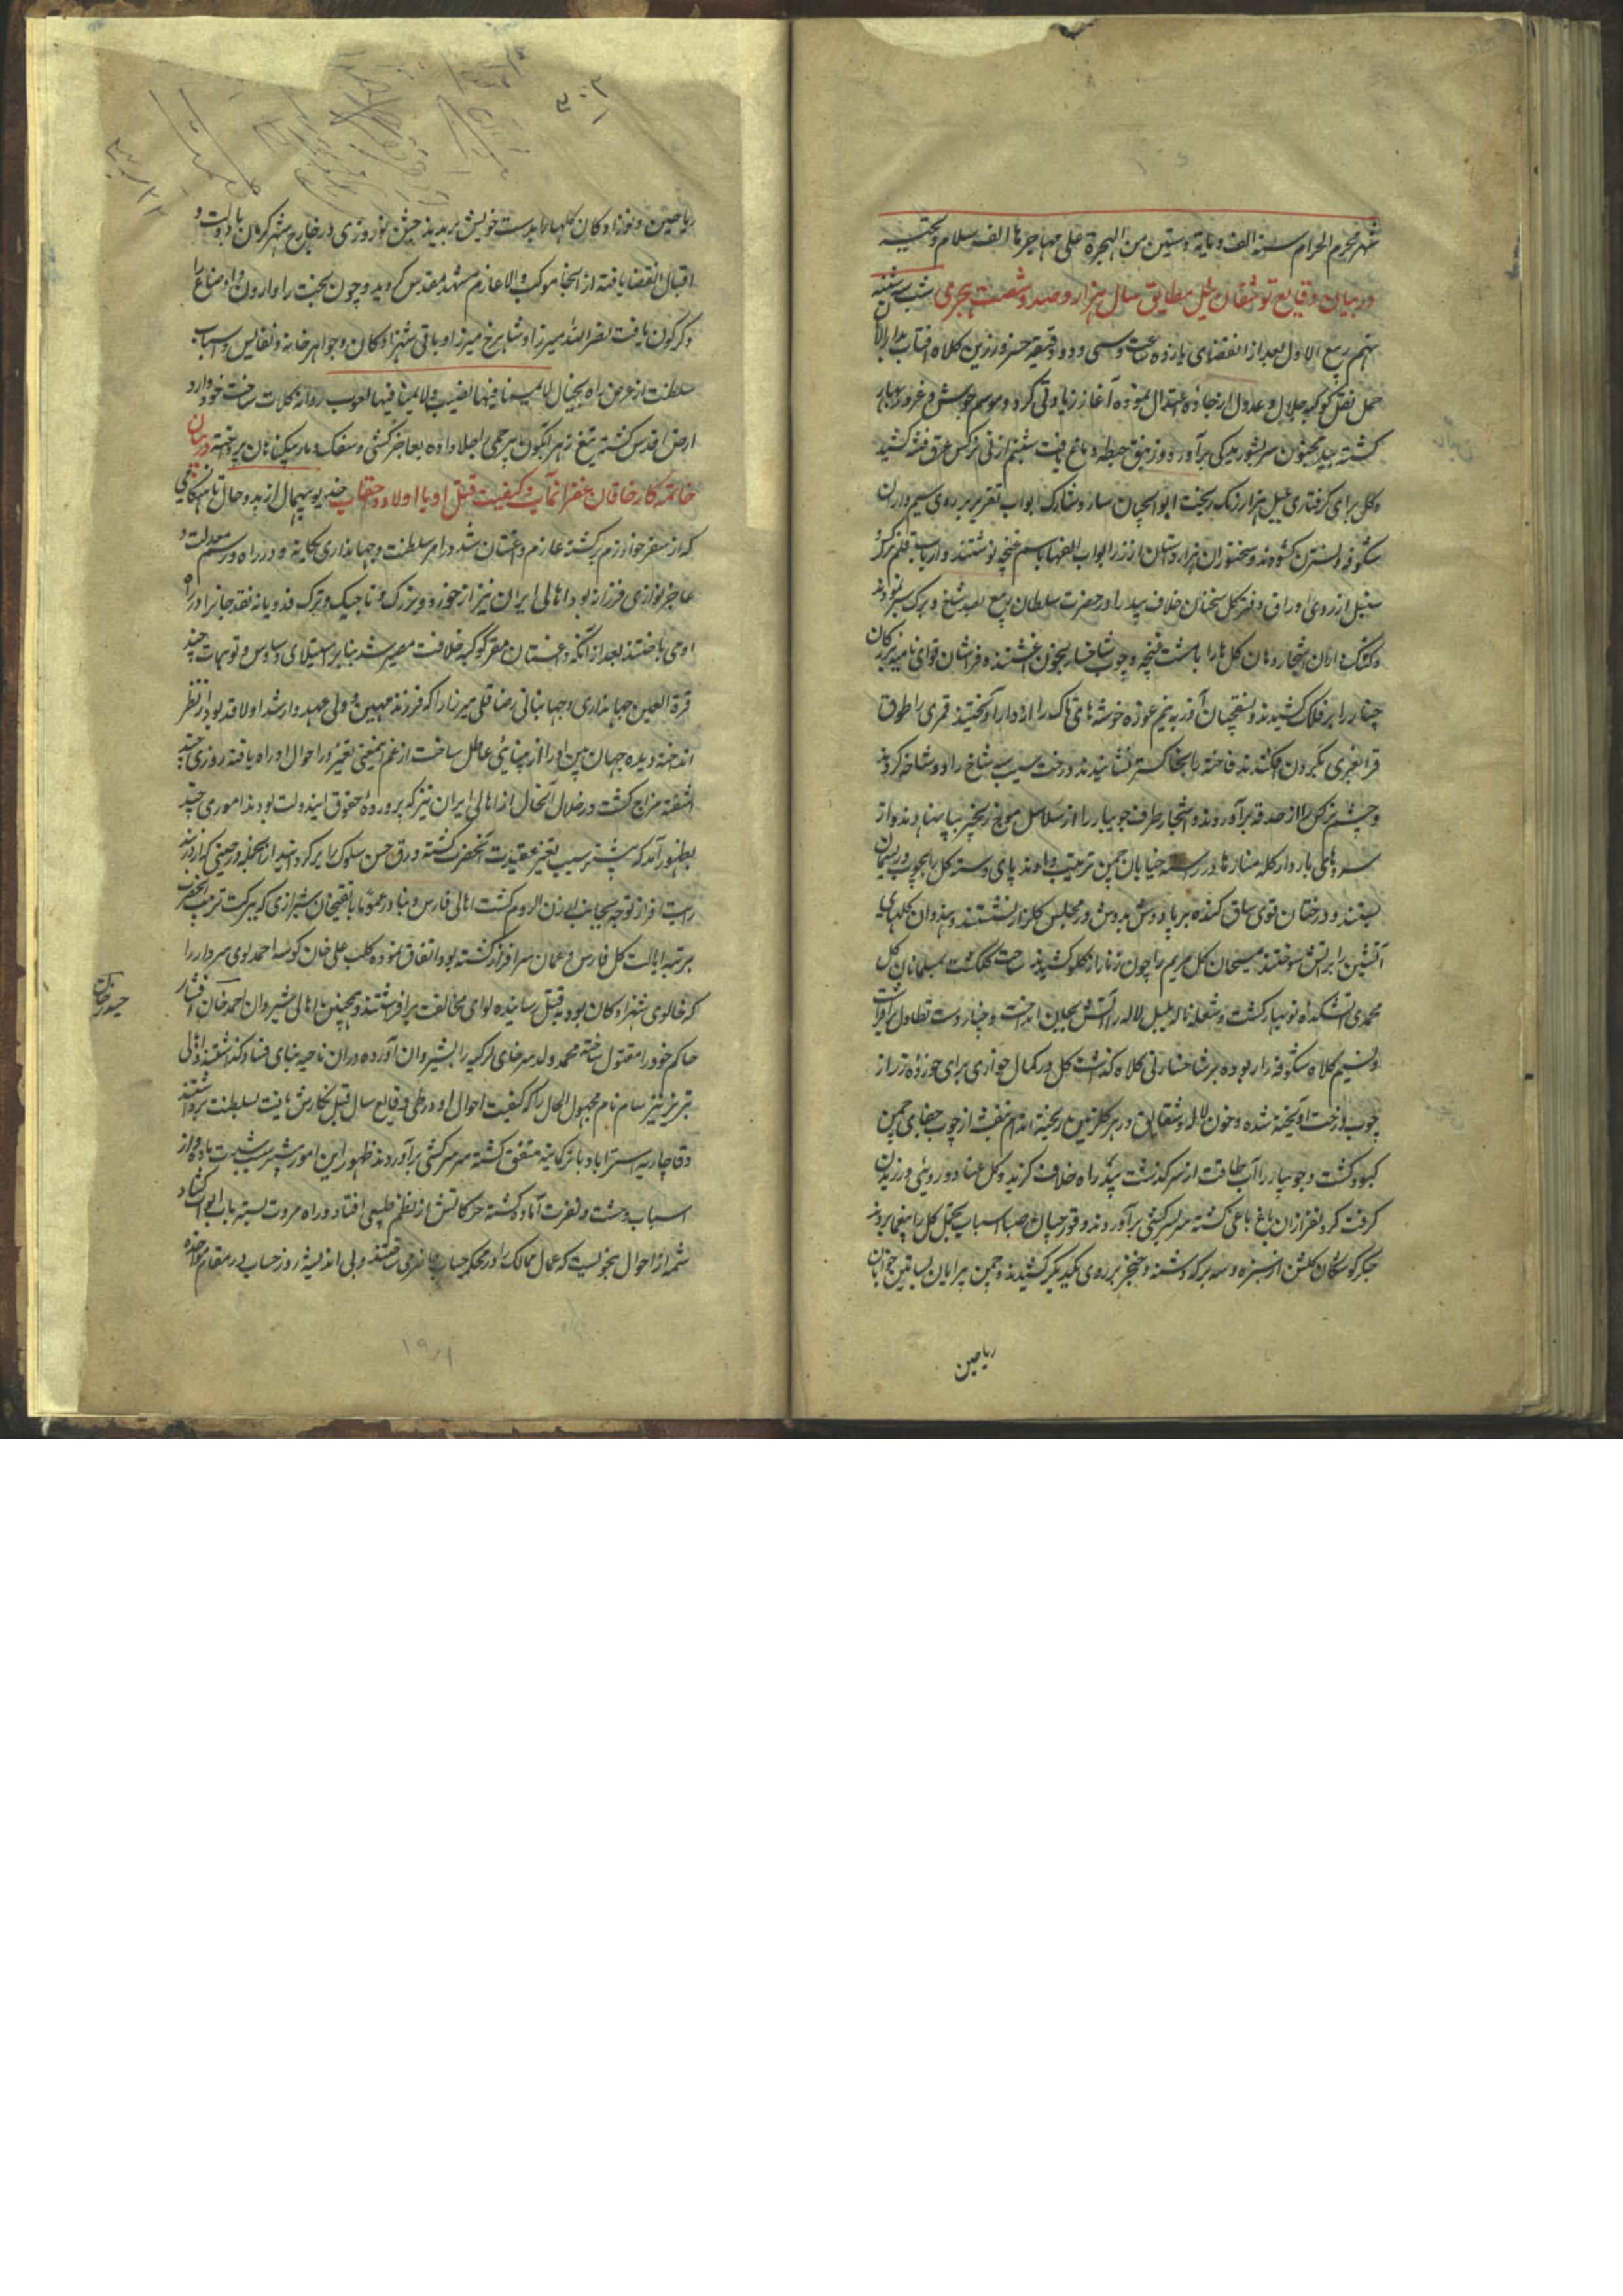 شهر محرم الحرام سنه الف و مایة و ستین من الهجرة علی مهاجرها الف سلام و تحیه
در بیان وقایع توشقان ئیل مطابق سال هزار و صد و شصت هجری شب سه شنبه
نهم ربیع الاول بعد از انقضای یازده ساعت و سی و دو دقیقه خسرو زرین کلاه افتاب بدار الا
حمل نقل کوکبه جلال و عدول از جاده اعتدال نموده آغاز زیادتی کرد و موسم جوش و غرور بهار
کشته بید مجنون سر بشوریدگی برآورد و زنبق حیطه دماغ یافت شبنم از نی نرکس عرق فتنه کشید
وکل برای کرفتاری بلبل هزار رنگ ریخت ابوالچیان سار و شارک ابواب تقریر بر روی سیم داران
شکوفه و نسترن کشودند و سخنوران هزار دستان از زر ابواب الفها باسم غنچه نوشتند و ارباب قلم نرکس و
سنبل از روی اوراق دفتر کل سخنان خلاف بید را در حضرت سلطان ربیع بصد شاخ و برک سبز نمودند
وکتک داران اشجار دهان کل ها را با مشت غنچه و چوب شاخسار بخون اغشتند و فراشان قوای نامیه نیزکان
چنار را بر فلک کشیدند و نسقچیان آذر به نیم غوره خوشه های تاک را از دار آویختند قمری را طوق
قرا بغری بکردن افکندند فاخته را بخاکستر نشانیدند درخت سیب بی شاخ را دو شاخه کردند
وچشم نرکس را از حدقه برآوردند و اشجار طرف جویبار را از سلاسل موج زنجیر بپا نهادند و از
سروهای بار دار کله منارها در رسته خیابان چمن ترتیب دادند پای دسته کل را بچوب و ریسمان
بستند و درختان قوی ساق کنده بر پا دوش بدوش در مجلس کلزار نشستند و هندوان کلهای
آتشین را بر آتش سوختند مسیحیان کل مریم را چون زنار از کلو کشیدند ساحت کلکشت مسلمانان کل
محمدی آتشکده نوبهار کشت و شعله ناله بلبل لاله را آتش بجان انداخت و چنار دست تطاول برافراشت
ونسیم کلاه شکوفه را ربوده بر شاخسار نی کلاه کذاشت کل در کمال خواری برای خورده زر از
چوب درخت آویخته شده و خون لاله و شقایق در هر کلزمین ریخته اندام بنفشه از چوب جفای چمن
کبود کشت و جویبار را آب طاقت از سر کذشت بید راه خلاف کزید وکل رعنا دو روئی ورزیدن
کرفت کرد نفر ازان باغ باغی کشته سر بسرکشی برآوردند و قورچیان صبا اسباب تجمل کل را بیغما بردند
جکر کوشکان کلشن از سبزه و سه برکه دشنه و خنجر بر روی یکدیکر کشیدند و چمن پیرایان بساتین جوانان
ریاحین
ریاحین و نوزادکان کلها را بدست خویش بریدند جشن نوروزی در خارج شهر کرمان با دولت و
اقبال انقضا یافته از انجا موکب والا عازم مشهد مقدس کردید و چون بخت را وارون و اوضاع را
دکرکون یافت نصرالله میرزا و شاهرخ میرزا و باقی شهزادکان و جواهرخانه و نفایس و اسباب
سلطنت از عرض راه بخیال لا یمسنا فیها نصب و لا یمسنا فیها لغوب روانه کلات ساخت خود وارد
ارض اقدس کشته تیغ زهر آبگون بیرحمی را جلا داده بعاجز کشی و سفک دماء بیکناهان پرداخته در بیان
خاتمه کار خاقان غفران مآب و کیفیت قتل او با اولاد و احفاب خدیو بیهمال از بدو حال تا هنکامی
که از سفر خوارزم برکشته عازم داغستان شد در امر سلطنت و جهانداری یکانه و در راه و رسم معدلت و
عاجز نوازی فرزانه بود اهالی ایران نیز از خورد و بزرک و تاجیک و ترک فدویانه نقد جانرا در راه
او می باختند بعد از آنکه داغستان مقر کوکبه خلافت مصیر شد بنا بر استیلای وساوس و توهمات چند
قرة العین جهانداری و جهانبانی رضا قلی میرزا را که فرزند مهین و ولی عهد و ارشد اولاد بود از نظر
انداخته دیده جهان بین او را از بینائی عاطل ساخت از غم اینمعنی تغییر در احوال او راه یافته روزی چند
اشفته مزاج کشت در خلال آنحال از اهالی ایران نیز که پرورده حقوق ایندولت بودند اموری چند
بظهور آمد که بیشتر سبب تغییر عقیدت آنحضرت کشته ورق حسن سلوک را برکردانید از انجمله در حینی که ار در بند
رایت افراز توجه بجانب ارزن الروم کشت اهالی فارس و بنادر عموما با تقیخان شیرازی که ببرکت تربیت آنحضرت
بمرتبه ایالت کل فارس و عمان سرافراز کشته بود اتفاق نموده کلب علی خان کوسه احمدلوی سردار را
که خالوی شهزادکان بود بقتل رسانیده لوای مخالفت برافراشتند و همچنین اهالی شیروان احمد خان افشار
حیدر خان
حاکم خود را مقتول ساخته محمد ولد سرخای لزکیه را بشیروان آورده دران ناحیه بنای فساد کذاشتند اهالی
تبریز نیز سام نام مجهول الحال را که کیفیت احوال او در طی وقایع سال قبل نکارش یافت بسلطنت برداشتند
و قاجاریه استراباد با ترکمانیه متفق کشته سر بسرکشی برآوردند ظهور این امور بیشتر سبب شدت ماده و از
اسباب وحشت و نفرت آماده کشته حرکاتش از نظم طبیعی افتاد و راه مروت بسته باب ابواب کشاد
شمه از احوال بخو لیست که عمال ممالک را در محکمه حساب بمعرض ساختند و بی اندیشه روز حساب در مقام مواخذه